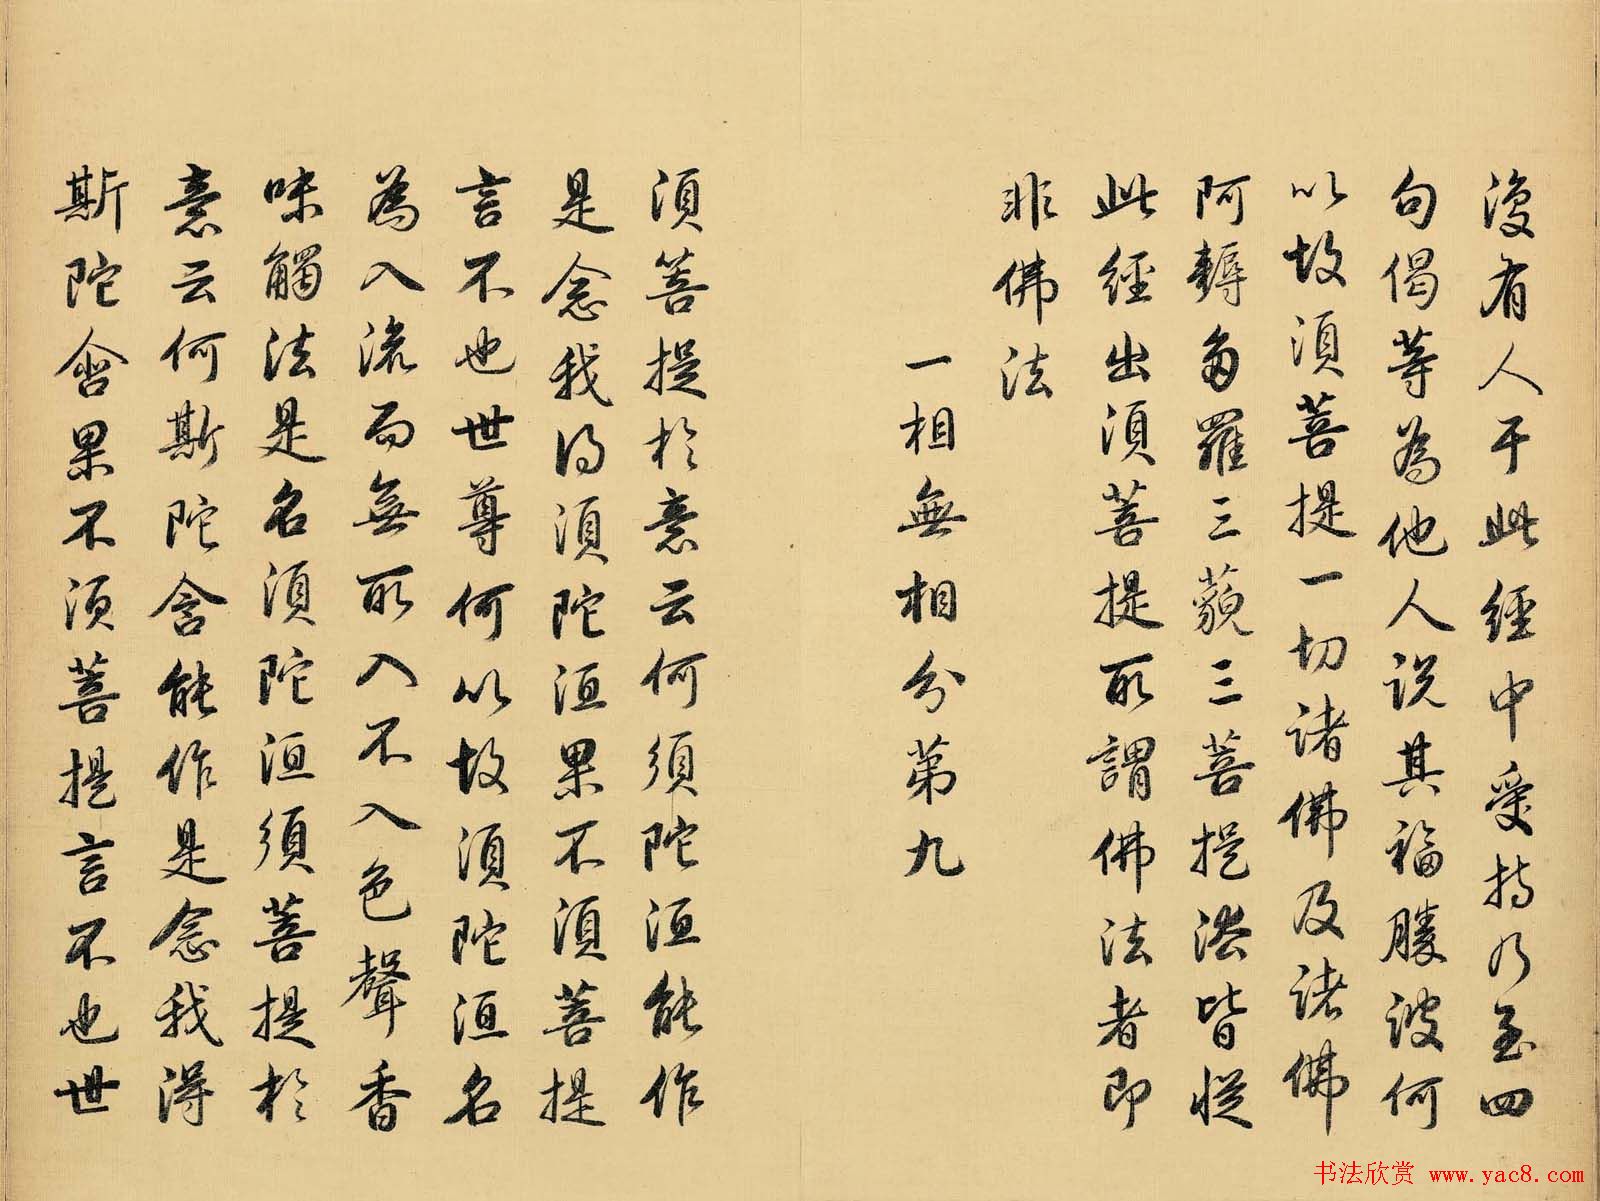 復有人于此經中受持乃至四
句偈等為他人說其福勝彼何
以故須菩提一切諸佛及諸佛
阿耨多羅三藐三菩提法皆從
此經出須菩提所謂佛法者即
非佛法
一相無相分第九
須菩提於意云何須陀洹能作
是念我得須陀洹果不須菩提
言不也世尊何以故須陀洹名
為入流而無所入不入色聲香
味觸法是名須陀洹須菩提於
意云何斯陀含能作是念我得
斯陀含果不須菩提言不也世
书法欣赏 www.yac8.com